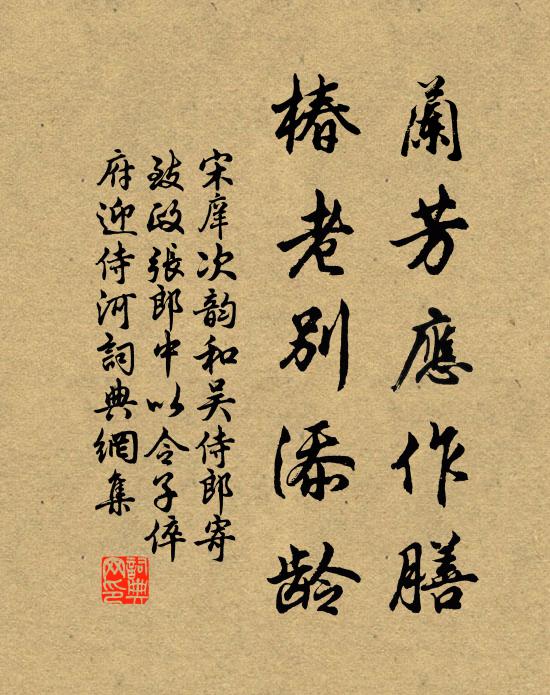 蘭芳應作膳
椿老别添龄
宋庠次韵和吴侍郎寄
致政張郎中以令子倅
府迎侍河詞典網集
詞典
网印